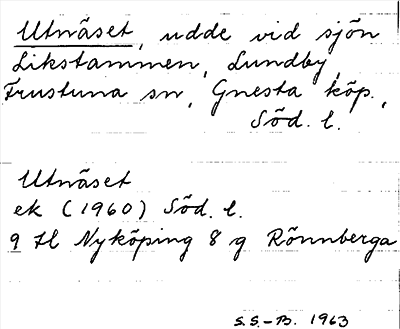 Utnäset, udde vid sjön
Likstammen, Lundby,
Frustuna sn, Gnesta köp.,
Söd. l.
Utnäset
ek (1960) Söd. l.
9 Hl Nyköping 8 g Rönnberga
S.S.-B. 1963